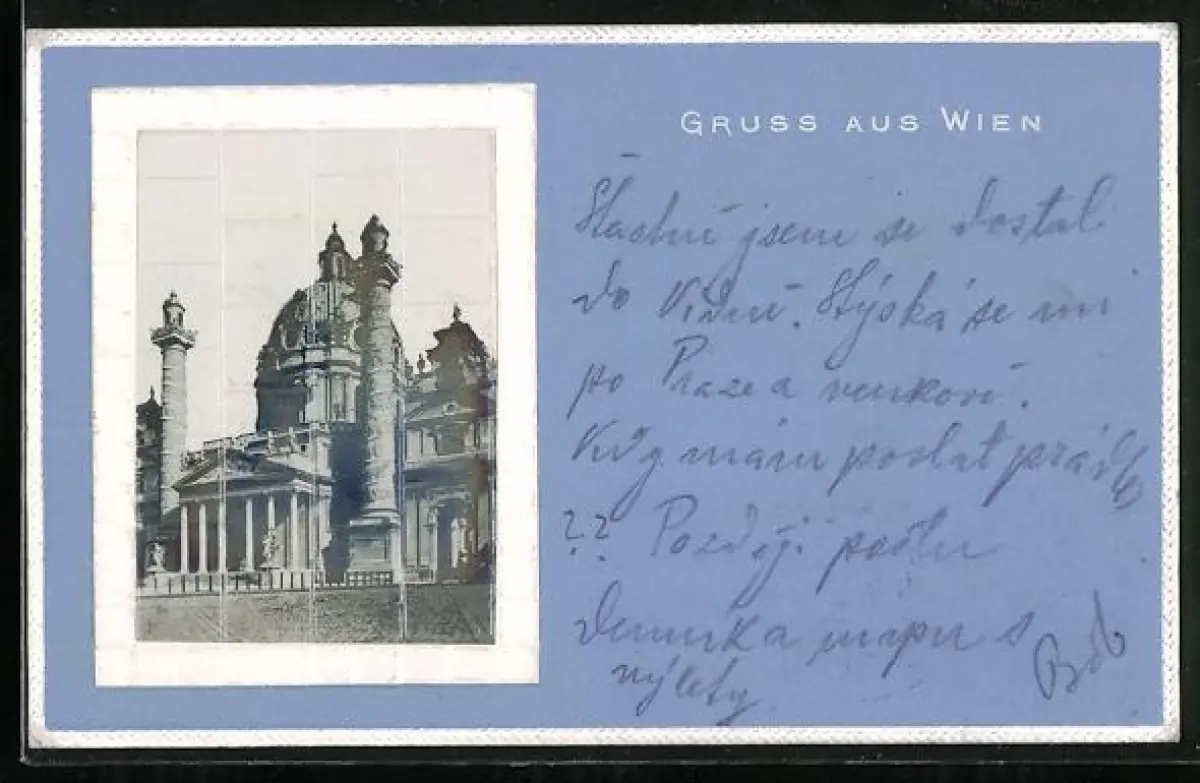 GRUSS AUS WIEN
Šťastně jsem se dostal
do Vídně. Stýská se mi
po Praze a venkově.
Kdy mám poslat prádlo
?? Později pošlu
denník a mapu s
výlety